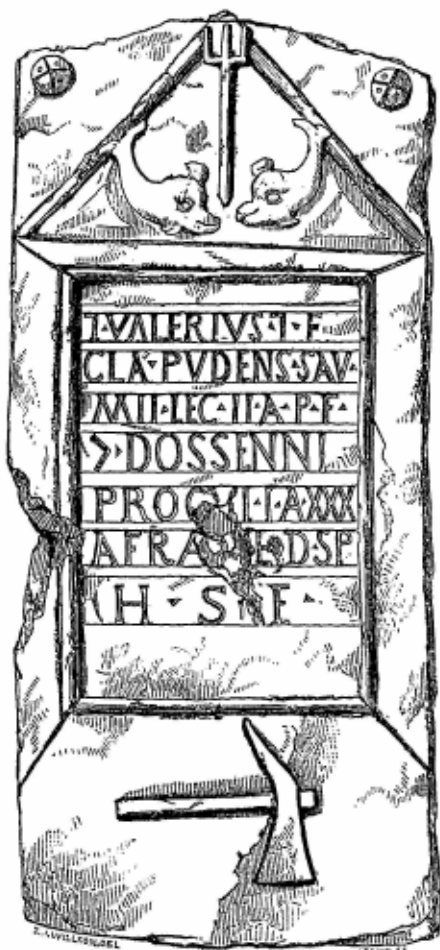 T·VALERIVS·T·F
CLA·PVDENS·SAV·
MIL·LEG·II·A·P·F·
>·DOSSENNI
A·XXX
D·SP
H·S·E·